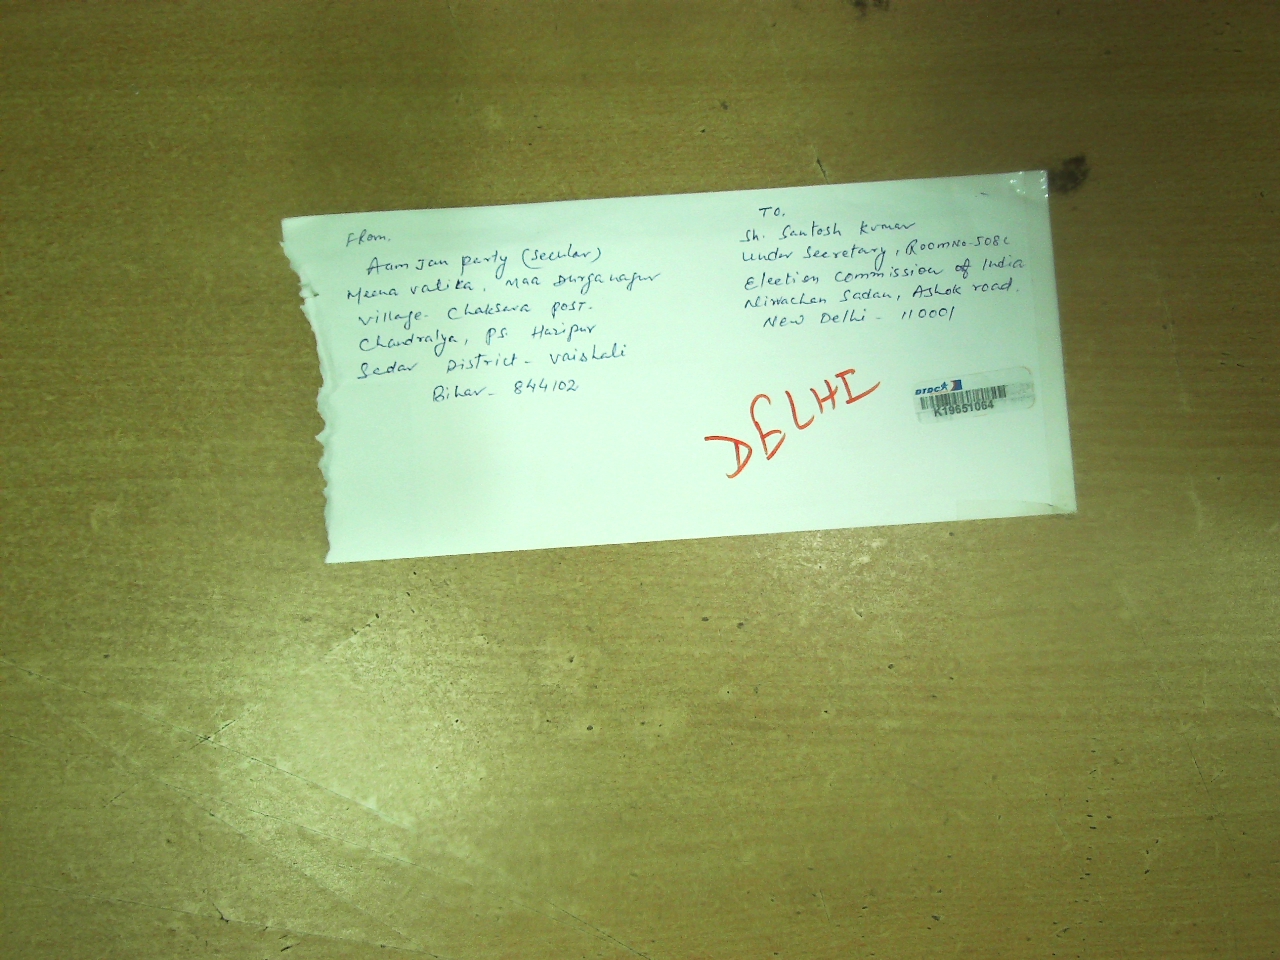 From,
Aam Jan party (Secular)
Meena Vatika, Maa Durganagar
Village- Chaksara post-
Chandralya, PS. Hazipur
Sadar District- Vaishali
Bihar- 844102
To,
Sh. Santosh Kumar
Under Secretary, Room No-508C
Election Commission of India
Nirvachan Sadan, Ashok road.
New Delhi - 110001
DELHI
DTDC
K19651064